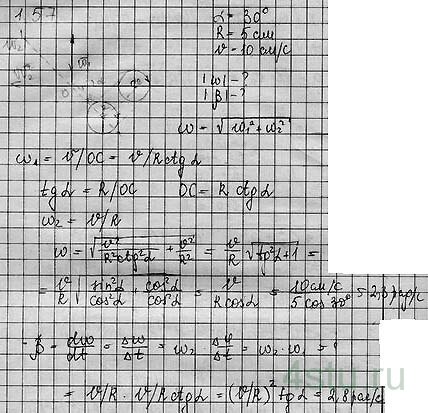 1.57
α = 30°
R = 5 см
v = 10 см/с
|ω| - ?
|β| - ?
ω = √ω₁² + ω₂²
ω₁ = v/OC = v/R ctg α
tg α = R/OC OC = R ctg α
ω₂ = v/R
ω = √(v²/R²ctg²α + v²/R²) = v/R √(tg²α + 1) =
= v/R √(sin²α/cos²α + cos²α/cos²α) = v/R cos α = 10 см/с / 5 cos 30° = 2,3 рад/с
β = dω/dt = Δω/Δt = ω₂ · Δφ/Δt = ω₂ · ω₁ =
= v/R · v/R ctg α = (v/R)² tg α = 2,8 рад/с
4stu.ru